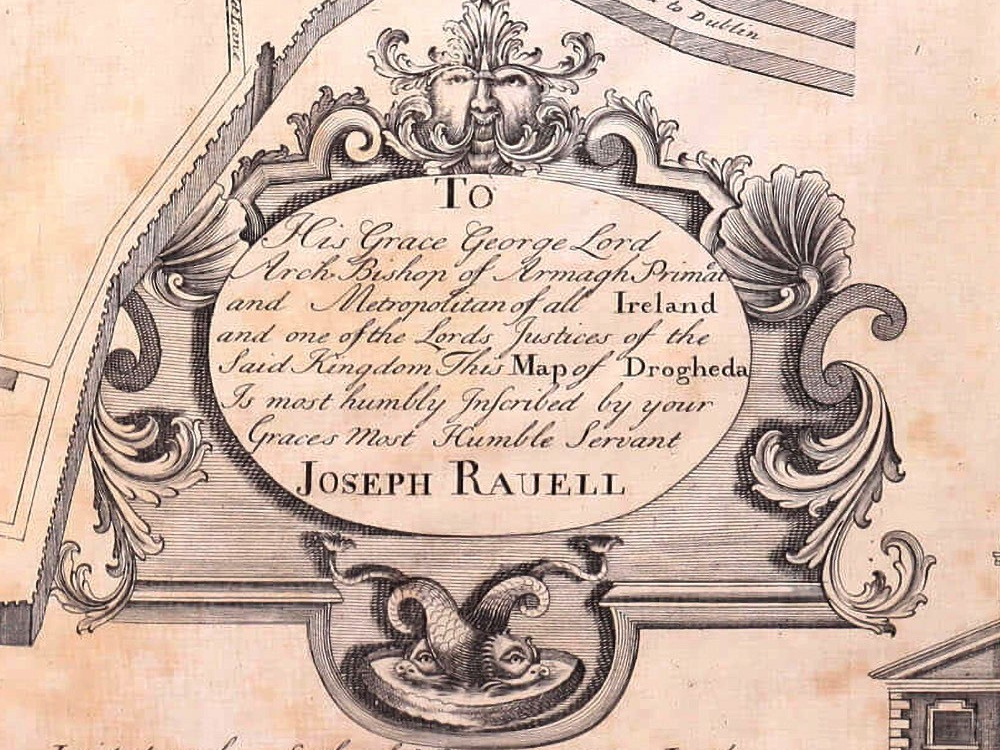 to Dublin
Lane
To
His Grace George Lord
Arch-Bishop of Armagh Primat
and Metropolitan of all Ireland
and one of the Lords Justices of the
Said Kingdom This Map of Drogheda
Is most humbly Inscribed by your
Graces Most Humble Servant
JOSEPH RAUELL